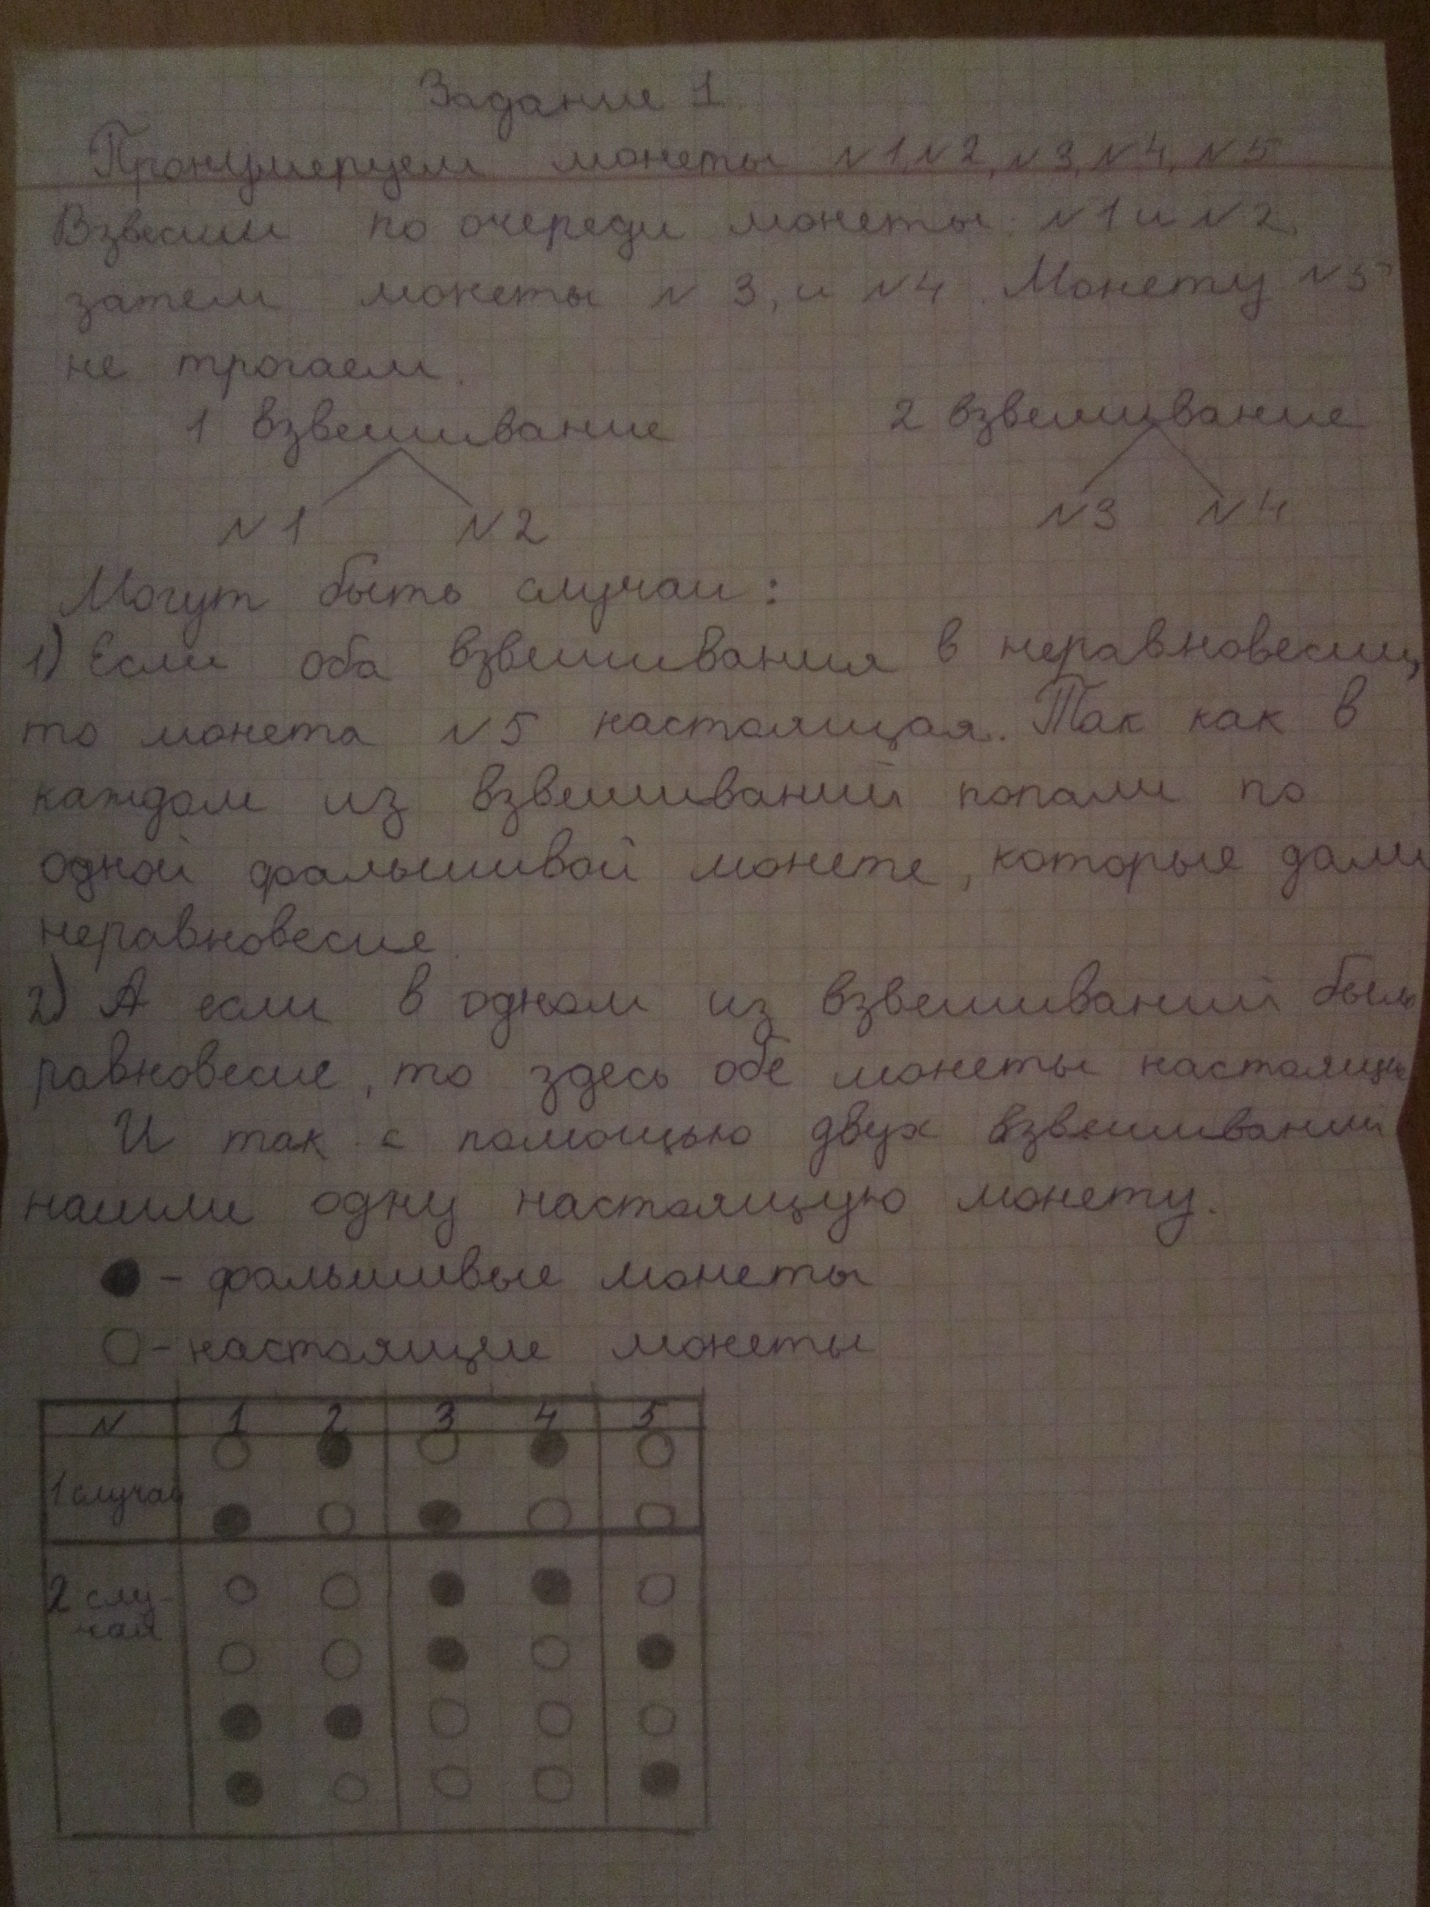 Задание 1
Пронумеруем монеты N1, N2, N3, N4, N5
Взвесим по очереди монеты N1 и N2,
затем монеты N 3, и N4. Монету N5
не трогаем.
1 взвешивание 2 взвешивание
N1 N2 N3 N4
Могут быть случаи:
1) Если оба взвешивания в неравновесии,
то монета N5 настоящая. Так как в
каждом из взвешиваний попали по
одной фальшивой монете, которые дали
неравновесие.
2) А если в одном из взвешиваний было
равновесие, то здесь обе монеты настоящие
И так с помощью двух взвешиваний
нашли одну настоящую монету.
- фальшивые монеты
- настоящие монеты
N 1 2 3 4 5
1 случай
2 слу-
чай